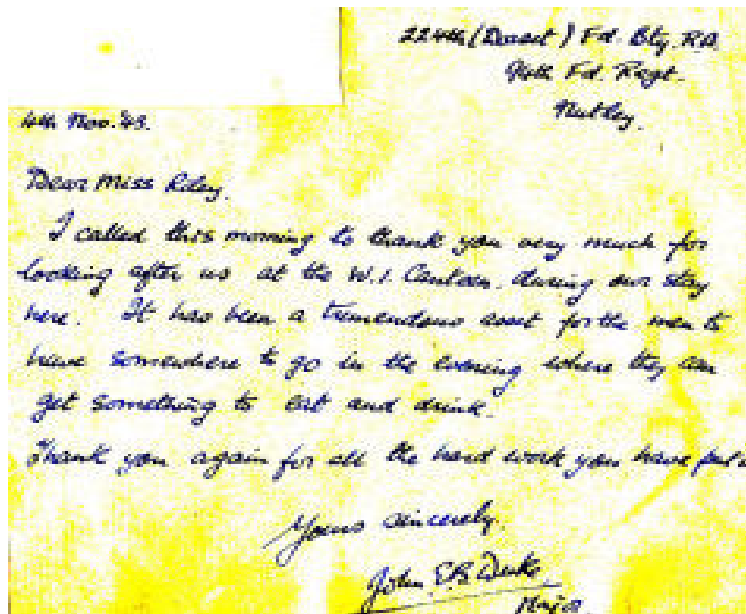 224th (Dorset) Fd. Bty. R.A.
94th Fd. Regt.
Nutley.
4th Nov. '43.
Dear Miss Riley,
I called this morning to thank you very much for
looking after us at the W.I. Canteen, during our stay
here. It has been a tremendous asset for the men to
have somewhere to go in the evening where they can
get something to eat and drink.
Thank you again for all the hard work you have put
Yours sincerely,
John
Major